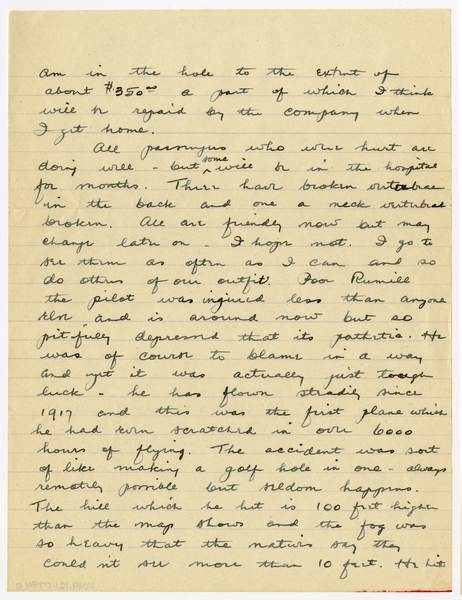 am in the hole to the extent of
about $350.00 a part of which I think
will be repaid by the company when
I get home.
All passengers who were hurt are
doing well - but some will be in the hospital
for months. Three have broken vertebrae
in the back and one a neck vertebrae
broken. All are friendly now but may
change later on - I hope not. I go to
see them as often as I can and so
do others of our outfit. Poor Rumill
the pilot was injured less than anyone
else and is around now but so
pitifully depressed that its pathetic. He
was of course to blame in a way
and yet it was actually just tough
luck - he has flown steadily since
1917 and this was the first plane which
he had even scratched in over 6000
hours of flying. The accident was sort
of like making a golf hole in one - always
remotely possible but seldom happens.
The hill which he hit is 100 feet higher
than the map shows and the fog was
so heavy that the natives say they
couldn't see more than 10 feet. He hit